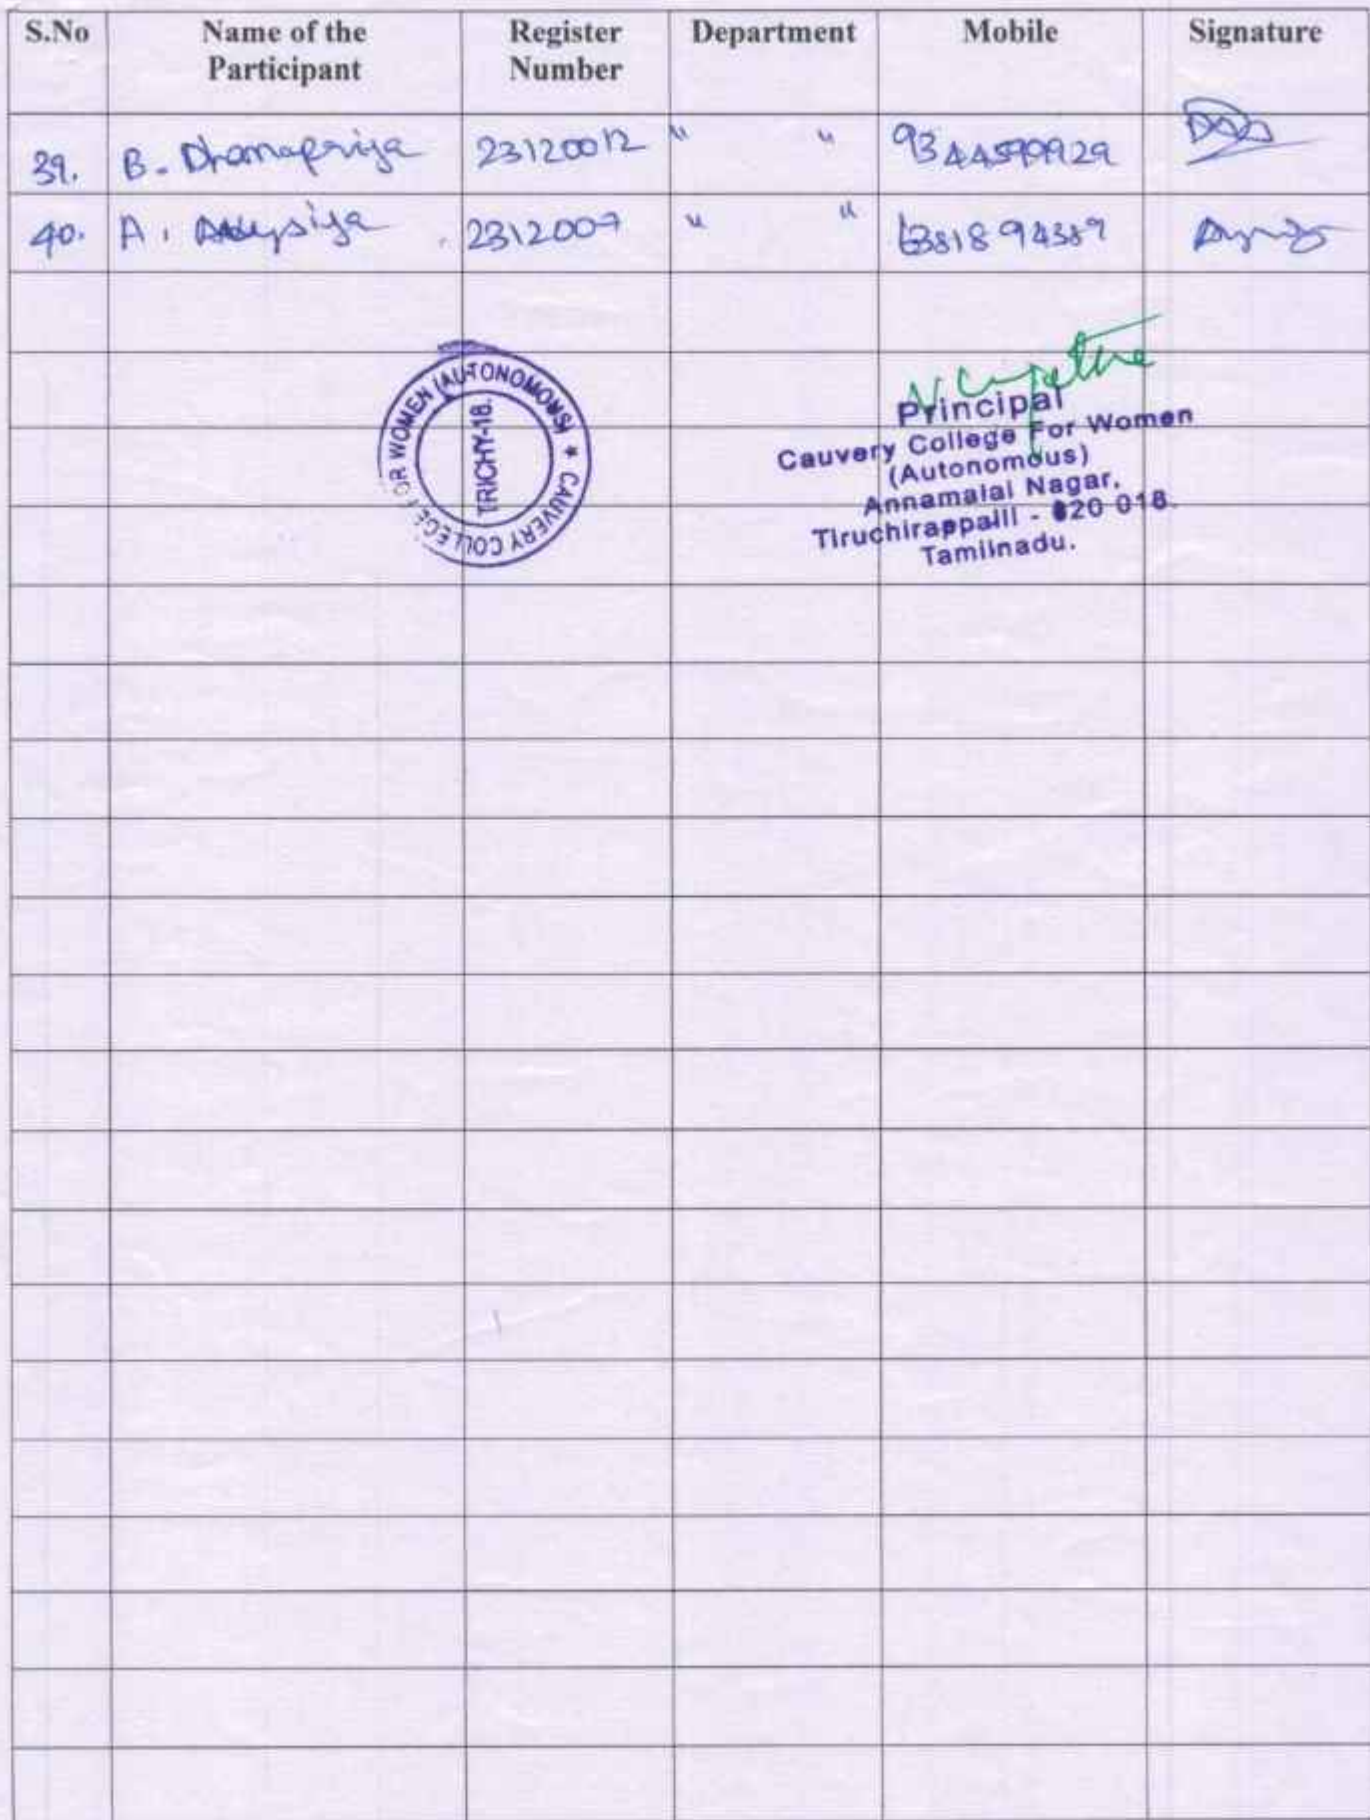 S.No Name of the Participant Register Number Department Mobile Signature
39. B. Dhamapriya 23120012 " " 9344590929
40. A. 2312007 " "
CAUVERY COLLEGE FOR WOMEN (AUTONOMOUS) *
TRICHY-18.
Principal
Cauvery College For Women
(Autonomous)
Annamalai Nagar,
Tiruchirappalli - 620 018.
Tamilnadu.